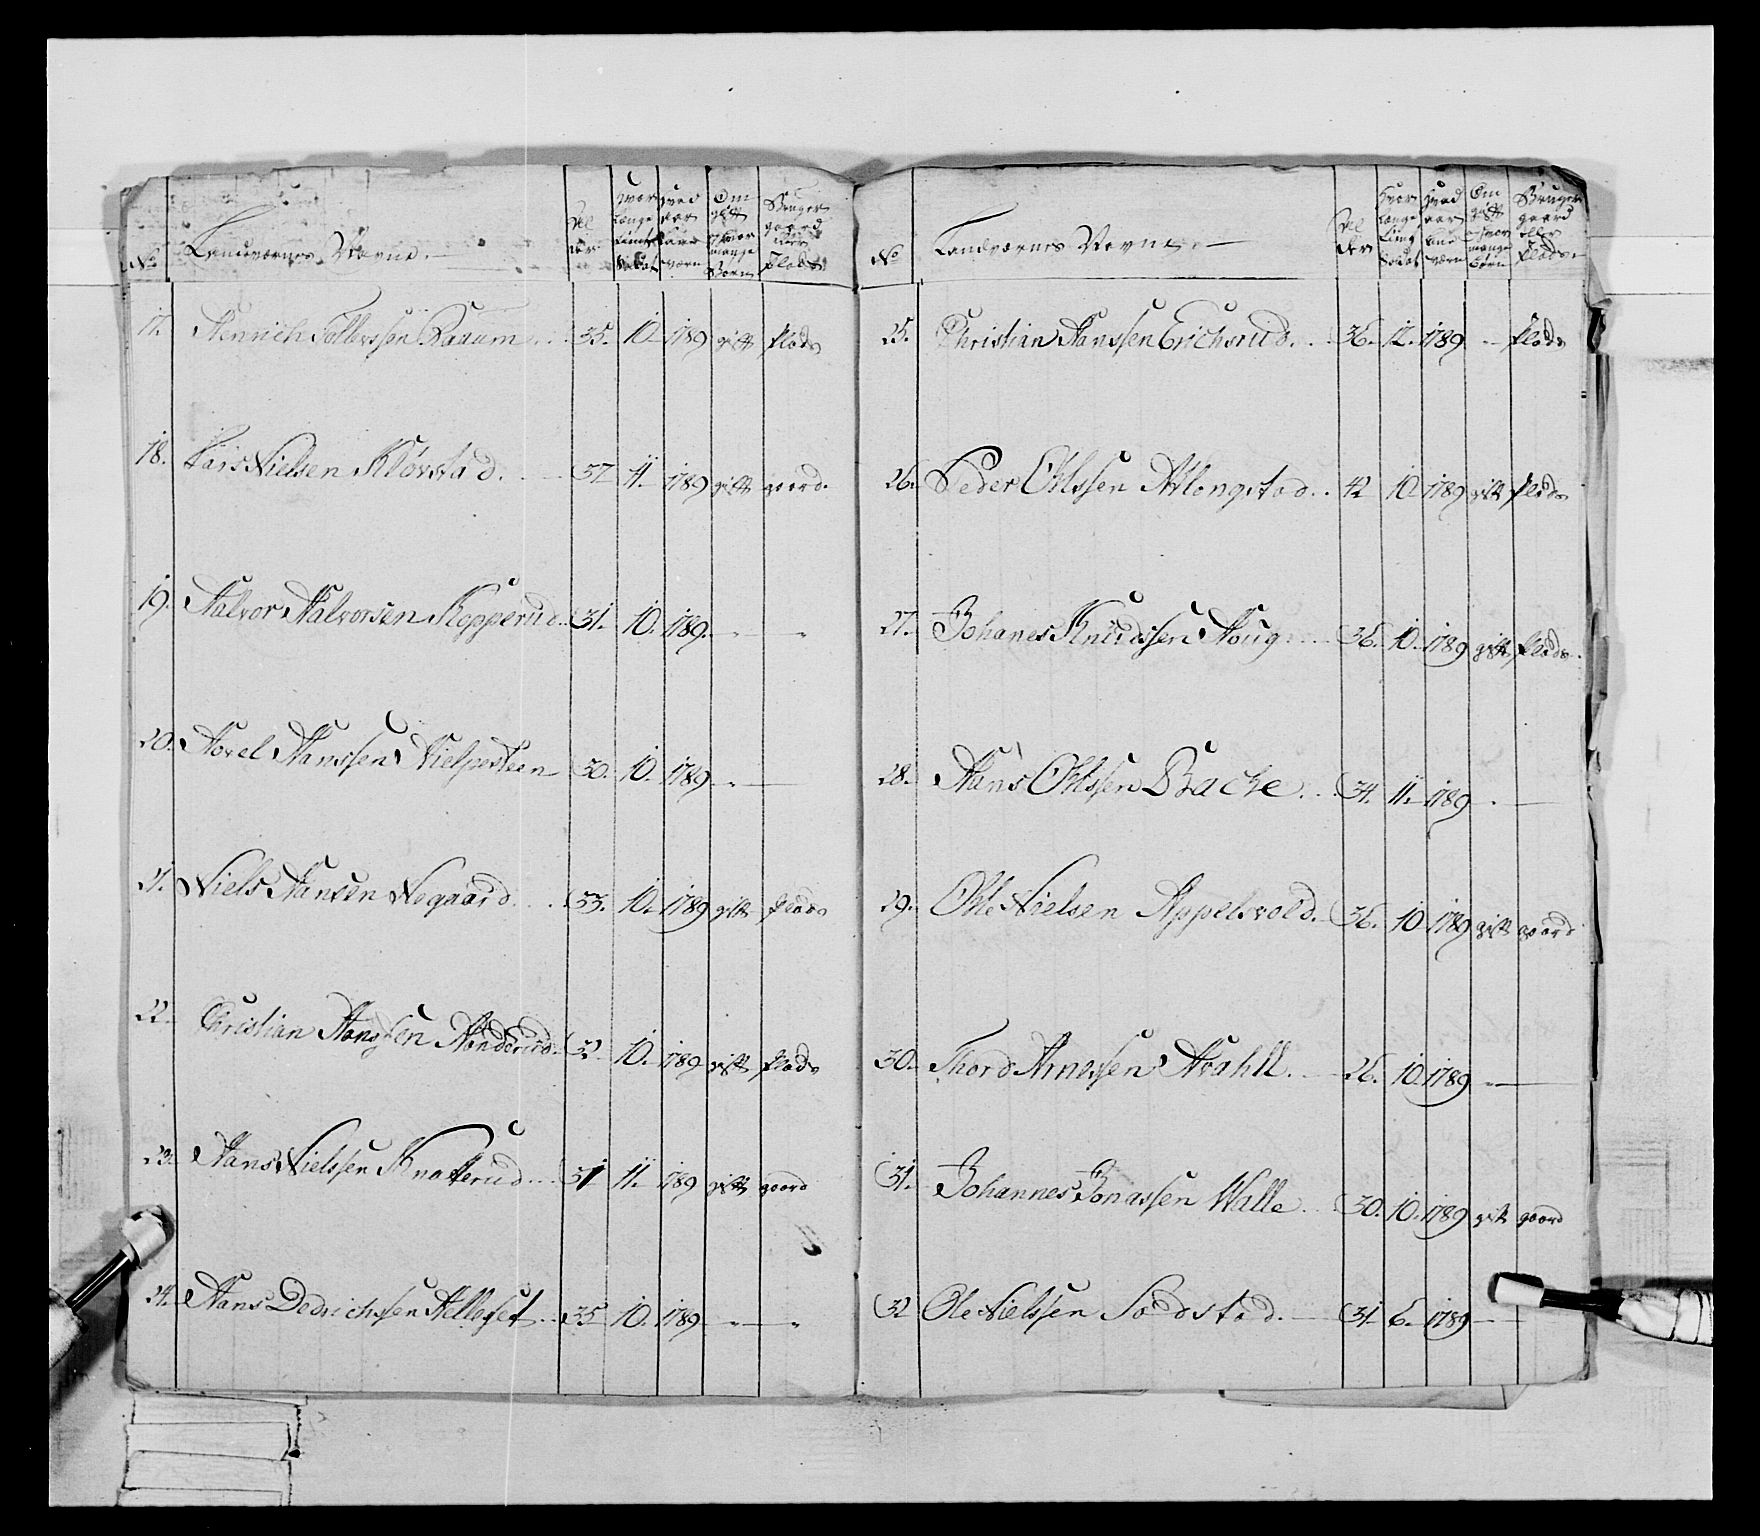 No Landværnes Navne. Al der Hvor længe tient Soldat Hvad aar Land værn Om gift og hvor mange Børn Bruger gaard eller Plads
17. Henrich Tollefssen Raaum 35. 10. 1789 gift Plads
18. Lars Nielsen Kløvstad. 37 11. 1789 gift gaard.
19. Halvor Halvorsen Kopperud. 31. 10. 1789. " "
20. Hovel Hanssen Hielpesteen 30. 10. 1789. "
21. Niels Hansen Negaard. 33. 10. 1789 gift Plads
22. Christian Hanssen 32. 10. 1789 gift Plads
23. Hans Nielssen Knatterud 31 11. 1789 gift gaard
24. Hans Dedrichssen Helleset 35 10. 1789 " "
No Landværnes Navne. Al der Hvor længe tient Soldat Hvad aar Land værn Om gift og hvor mange Børn Bruger gaard eller Plads
25. Christian Hanssen Erichsrud. 36. 12. 1789 Plads
26. Peder Ohlssen 42 10. 1789 gift Plads
27. Johanes Knudssen Houg 36. 10. 1789 gift Plads.
28. Hans Ohlssen Backe. 34. 11. 1789 "
29. Ohle Nielsen Appelsvold. 36. 10 1789 gift gaard
30. Thord Arnessen 26. 10. 1789 "
31. Johannes Jonassen Walle. 30. 10. 1789 gift gaard
32 Ole Nielssen Sodstad. 31. 6. 1789